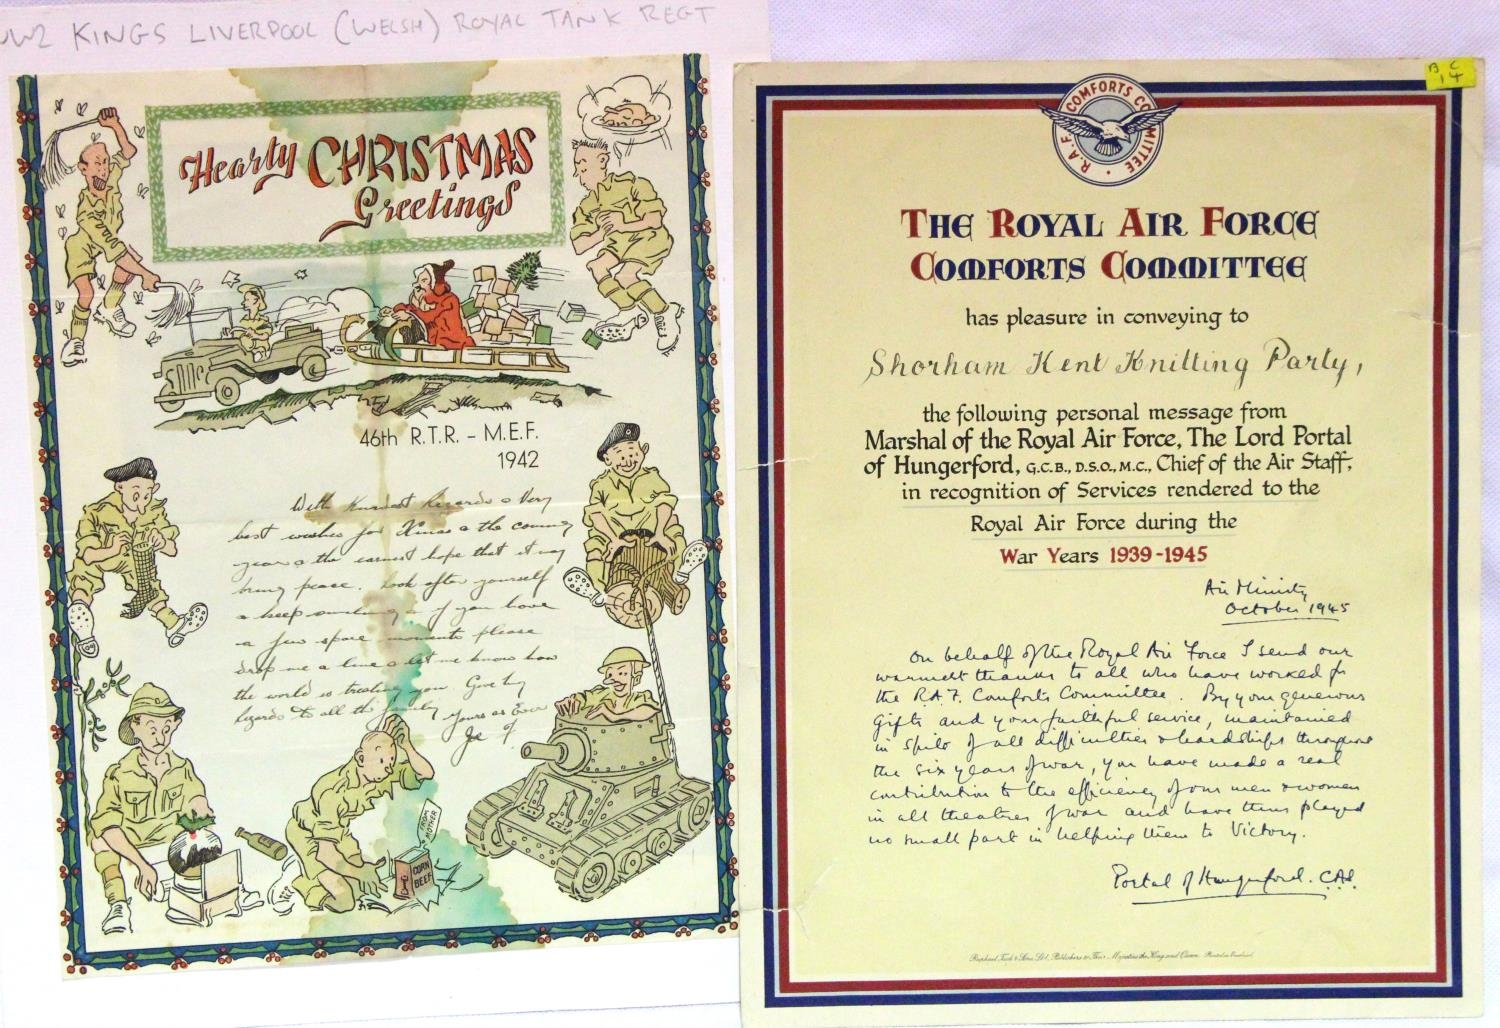 WW2 KINGS LIVERPOOL (WELSH) ROYAL TANK REGT
Hearty CHRISTMAS
Greetings
46th R.T.R. - M.E.F.
1942
With Kindest Regards & Very
best wishes for Xmas & the coming
year & the earnest hope that it may
bring peace. Look after yourself
& keep smiling & if you have
a few spare moments please
drop me a line & let me know how
the world is treating you. Give my
regards to all the family
Yours as Ever
Joe
FROM MOTHER
CORN
BEEF
B C
14
R.A.F. COMFORTS COMMITTEE
THE ROYAL AIR FORCE
COMFORTS COMMITTEE
has pleasure in conveying to
Shorham Kent Knitting Party,
the following personal message from
Marshal of the Royal Air Force, The Lord Portal
of Hungerford, G.C.B., D.S.O., M.C., Chief of the Air Staff,
in recognition of Services rendered to the
Royal Air Force during the
War Years 1939-1945
Air Ministry
October 1945
On behalf of the Royal Air Force I send our
warmest thanks to all who have worked for
the R.A.F. Comforts Committee. By your generous
gifts and your faithful service, maintained
in spite of all difficulties & hardships throughout
the six years of war, you have made a real
contribution to the efficiency of our men & women
in all theatres of war and have thus played
no small part in helping them to Victory.
Portal of Hungerford. C.A.S.
Raphael Tuck & Sons Ltd. Publishers to Their Majesties the King and Queen